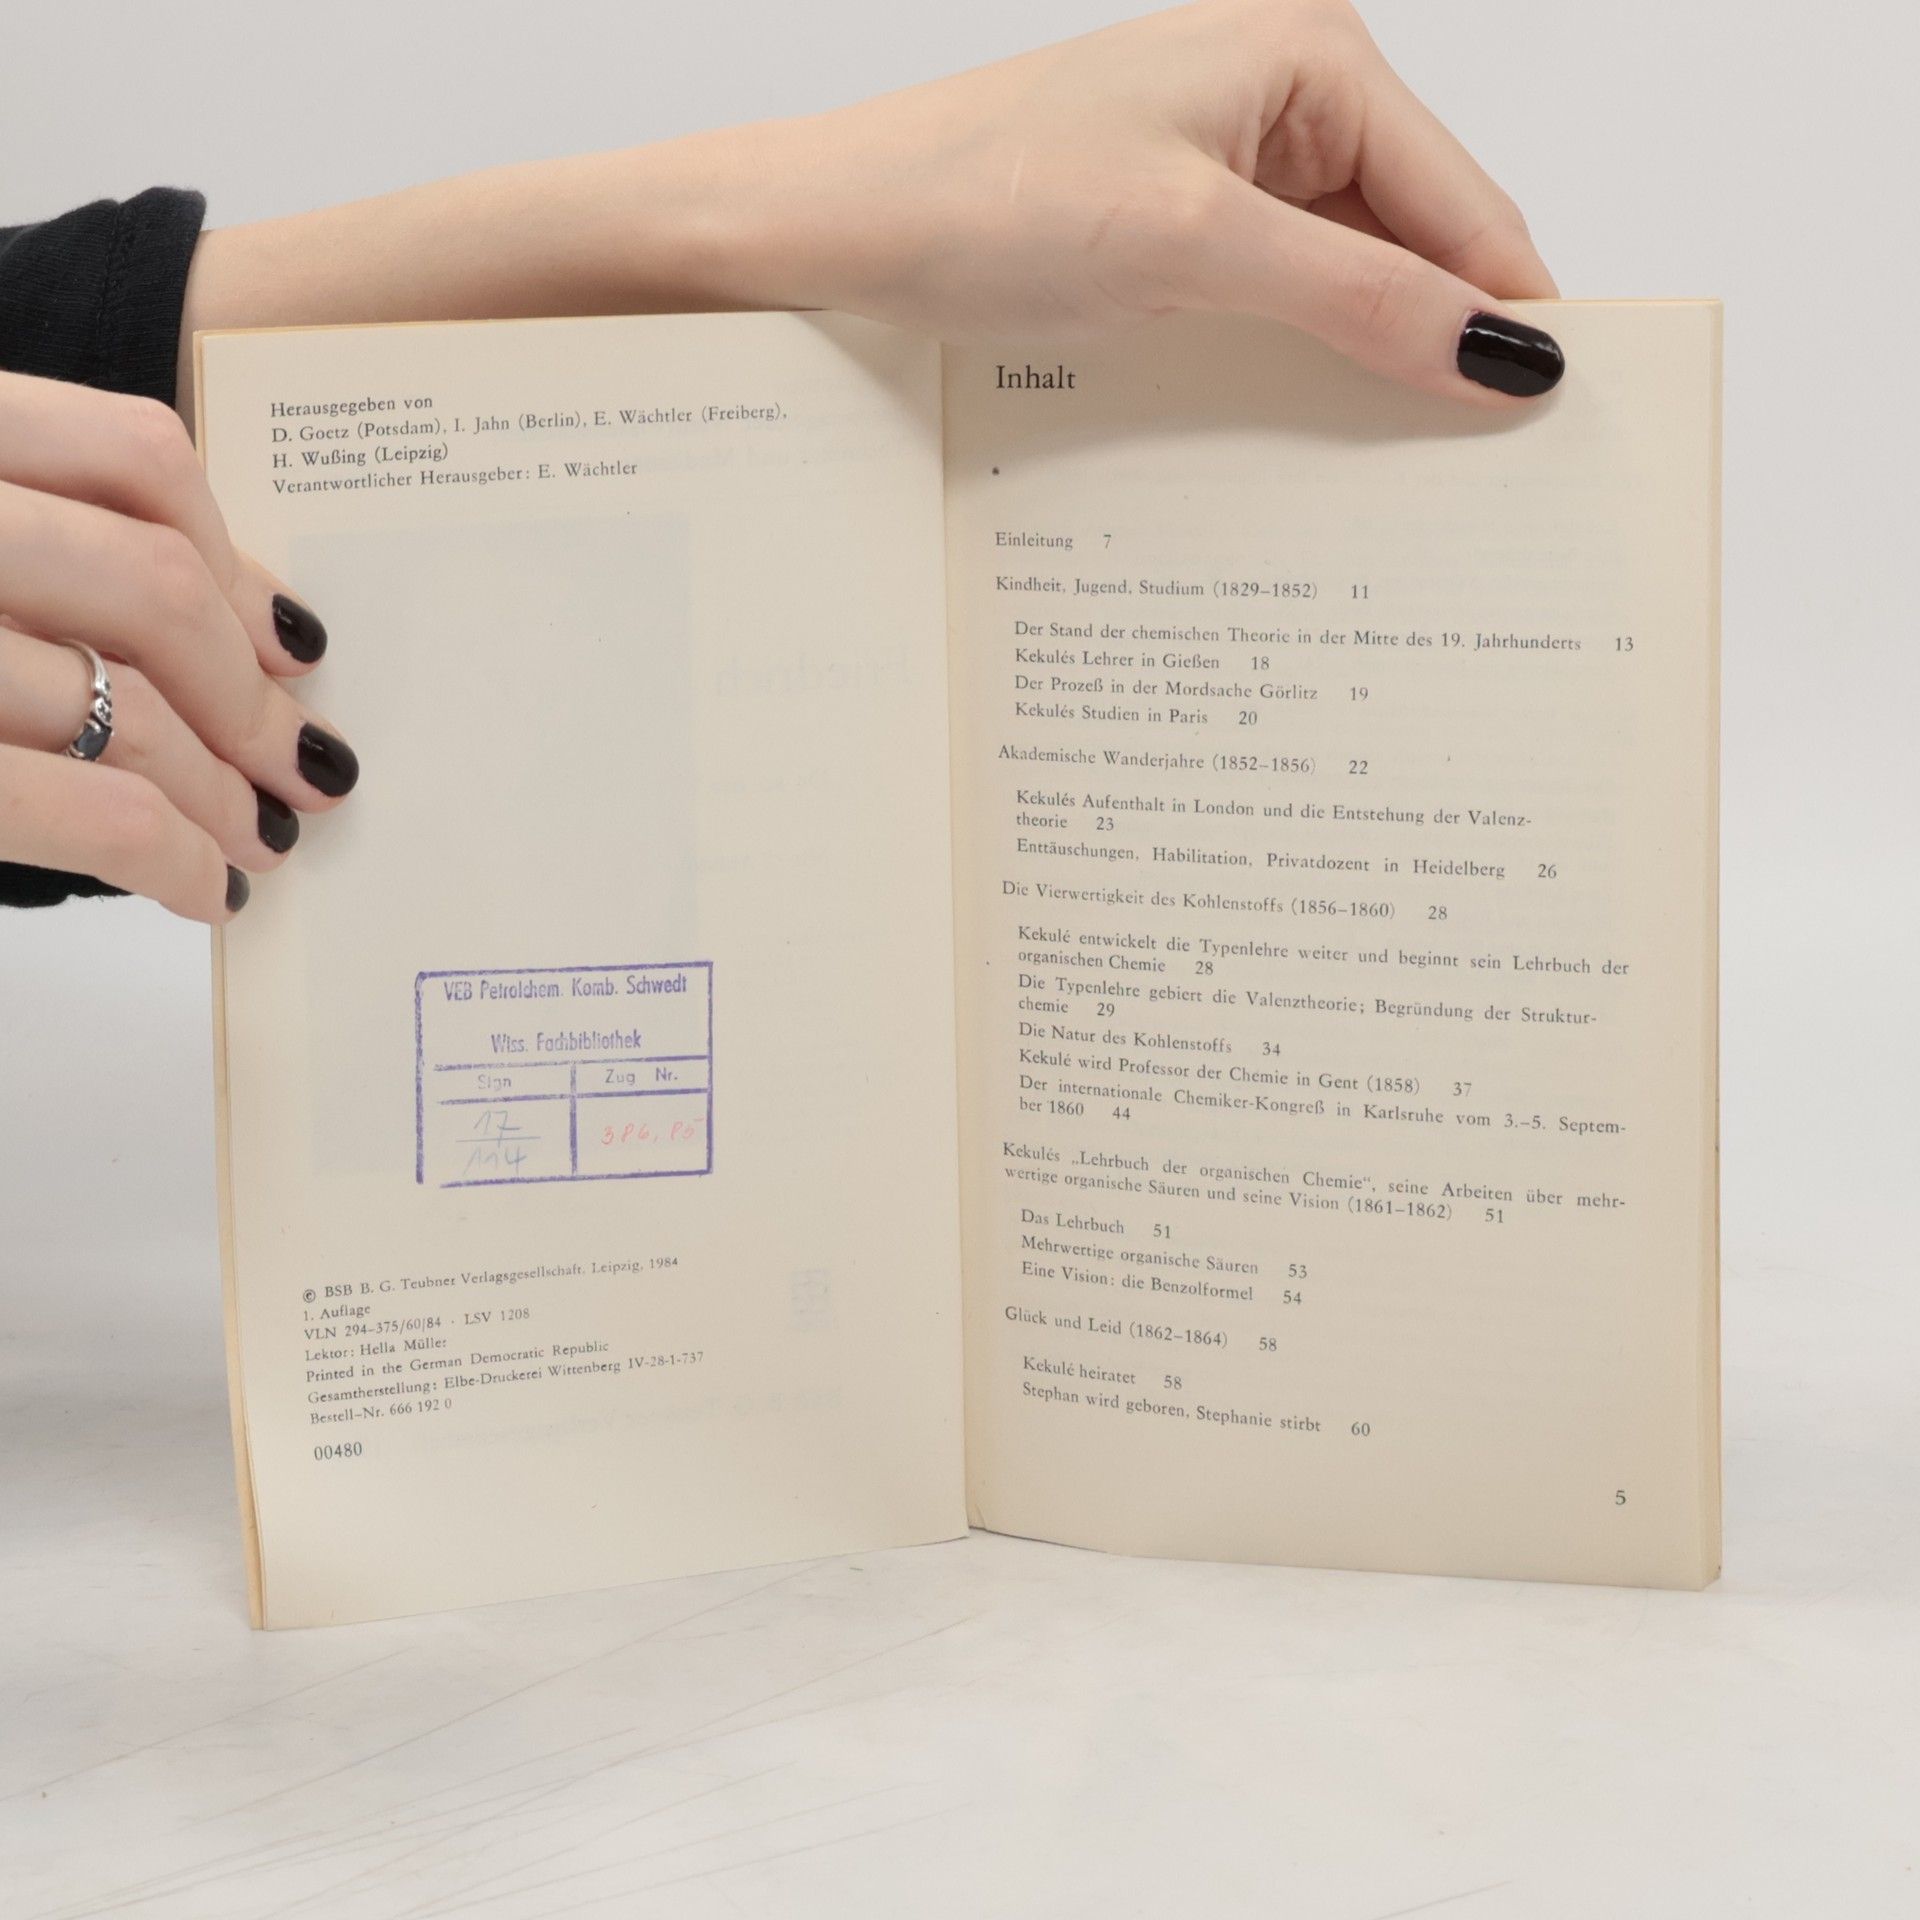 Herausgegeben von
D. Goetz (Potsdam), I. Jahn (Berlin), E. Wächtler (Freiberg),
H. Wußing (Leipzig)
Verantwortlicher Herausgeber: E. Wächtler
VEB Petrolchem. Komb. Schwedt
Wiss. Fachbibliothek
Sign Zug Nr.
17
114 386, 85
© BSB B. G. Teubner Verlagsgesellschaft, Leipzig, 1984
1. Auflage
VLN 294–375/60/84 · LSV 1208
Lektor: Hella Müller
Printed in the German Democratic Republic
Gesamtherstellung: Elbe-Druckerei Wittenberg IV-28-1-737
Bestell–Nr. 666 192 0
00480
Inhalt
Einleitung 7
Kindheit, Jugend, Studium (1829–1852) 11
Der Stand der chemischen Theorie in der Mitte des 19. Jahrhunderts 13
Kekulés Lehrer in Gießen 18
Der Prozeß in der Mordsache Görlitz 19
Kekulés Studien in Paris 20
Akademische Wanderjahre (1852–1856) 22
Kekulés Aufenthalt in London und die Entstehung der Valenz-
theorie 23
Enttäuschungen, Habilitation, Privatdozent in Heidelberg 26
Die Vierwertigkeit des Kohlenstoffs (1856–1860) 28
Kekulé entwickelt die Typenlehre weiter und beginnt sein Lehrbuch der
organischen Chemie 28
Die Typenlehre gebiert die Valenztheorie; Begründung der Struktur-
chemie 29
Die Natur des Kohlenstoffs 34
Kekulé wird Professor der Chemie in Gent (1858) 37
Der internationale Chemiker-Kongreß in Karlsruhe vom 3.–5. Septem-
ber 1860 44
Kekulés „Lehrbuch der organischen Chemie“, seine Arbeiten über mehr-
wertige organische Säuren und seine Vision (1861–1862) 51
Das Lehrbuch 51
Mehrwertige organische Säuren 53
Eine Vision: die Benzolformel 54
Glück und Leid (1862–1864) 58
Kekulé heiratet 58
Stephan wird geboren, Stephanie stirbt 60
5